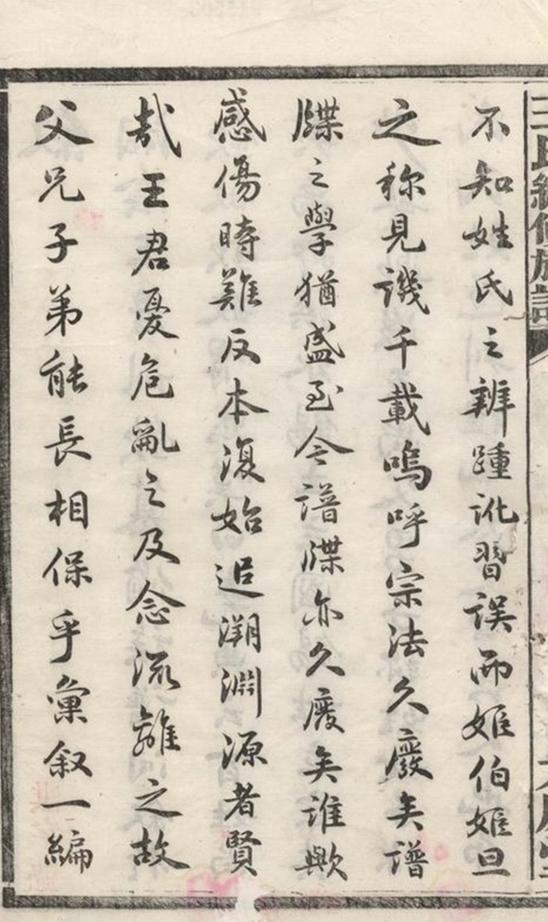 王氏續修族譜
不知姓氏之辨踵訛習誤而姬伯姬旦
之称見譏千載嗚呼宗法久廢矣譜
牒之學猶盛至今譜牒亦久廢矣誰歟
感傷時難反本復始追溯淵源者賢
哉王君憂危亂之及念流離之故
父兄子弟能長相保乎彙叙一編